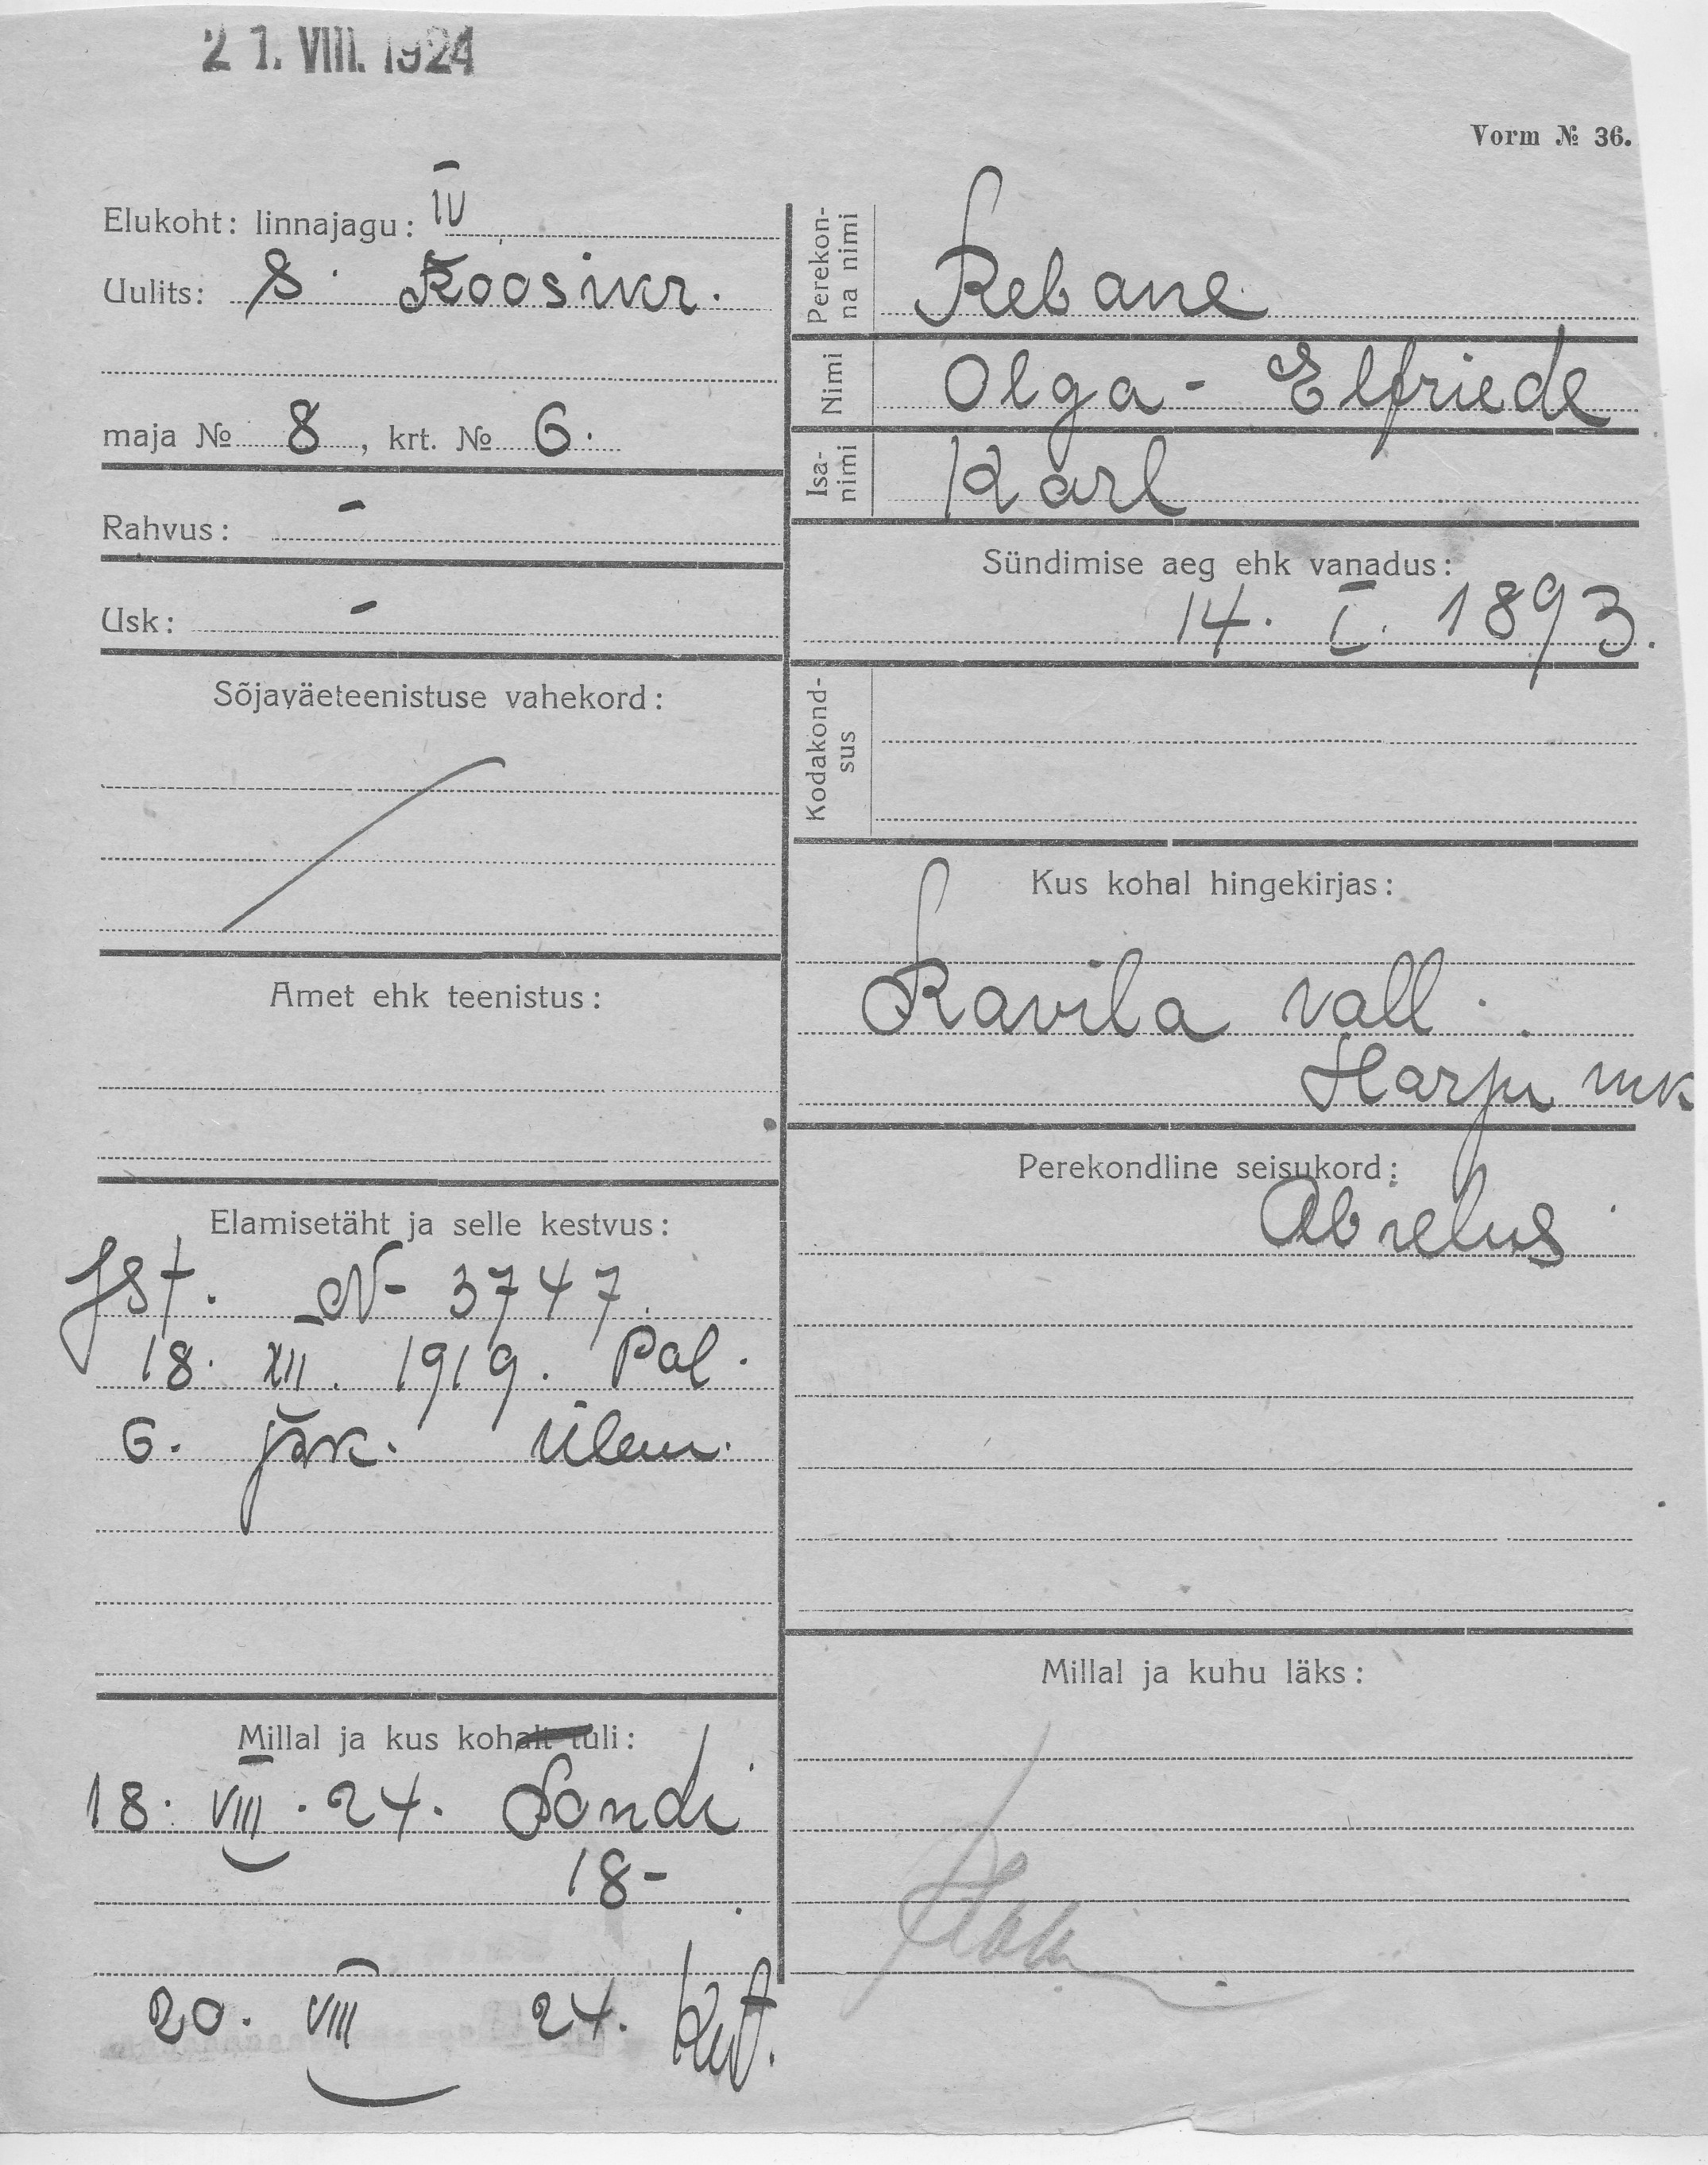 21. VIII. 1924
Vorm № 36.
Elukoht: linnajagu: IV
Uulits: S. Roosikr.
maja № 8, krt. № 6.
Rahvus: -
Usk: -
Sõjaväeteenistuse vahekord:
Amet ehk teenistus:
Elamisetäht ja selle kestvus:
Ist. № 3747.
18. XII. 1919. Pol.
6. jsk. ülem.
Millal ja kus kohalt tuli:
18. VIII. 24. Pondi
18-
20. VIII 24.
Perekonna nimi
Rebane
Nimi
Olga-Elfriede
Isanimi
Karl
Sündimise aeg ehk vanadus:
14. I. 1893.
Kodakondsus
Kus kohal hingekirjas:
Ravila vall.
Harju mk
Perekondline seisukord:
Abielus
Millal ja kuhu läks: